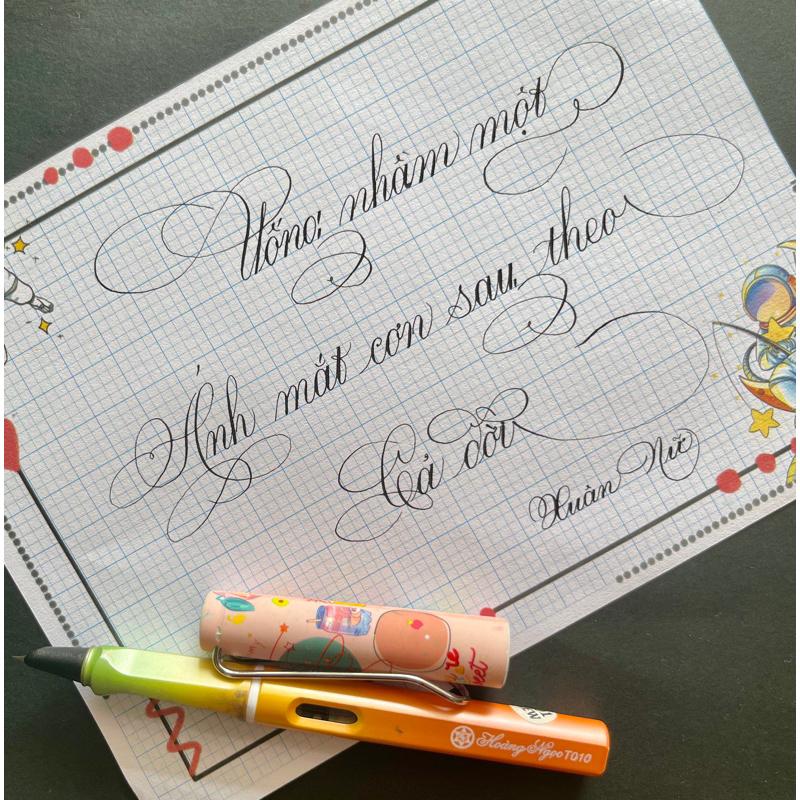 Uống nhầm một
Ánh mắt cơn say theo
Cả đời
Xuân Nữ
Hoàng Ngọc T010